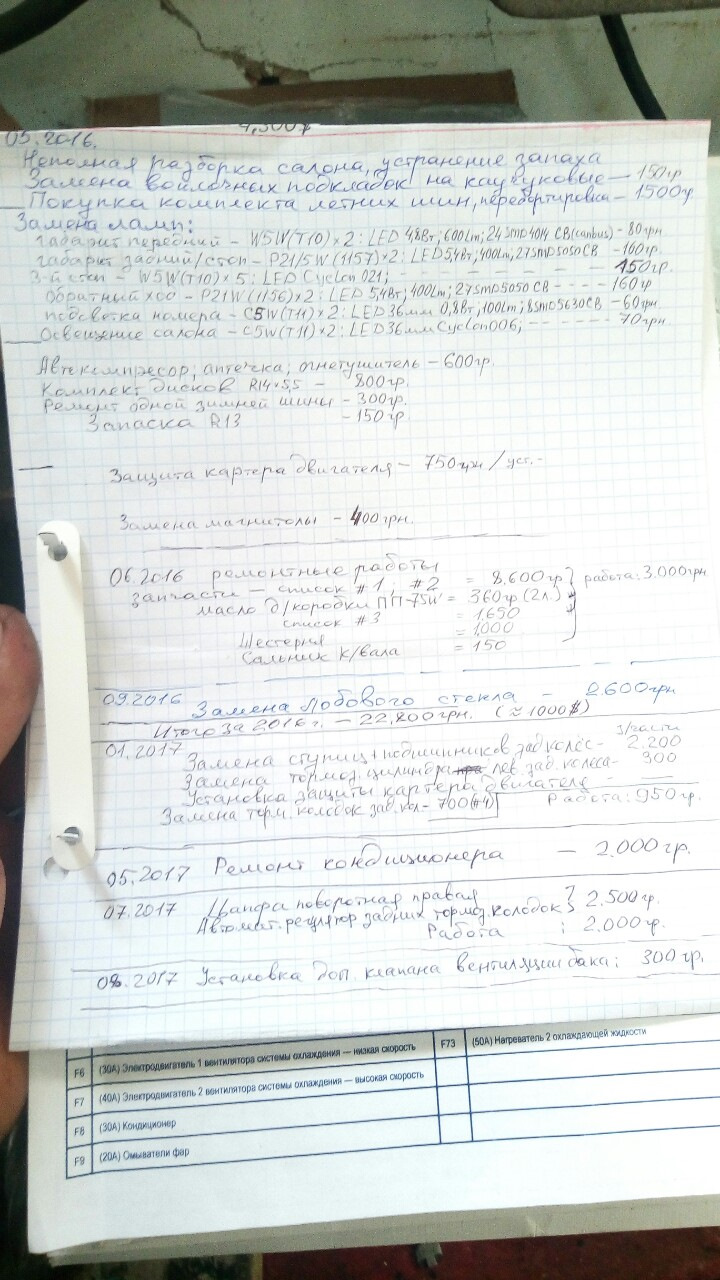 4,300г
05.2016.
Неполная разборка салона, устранение запаха
Замена войлочных подкладок на каучуковые — 150гр
Покупка комплекта летних шин, перебортировка — 1500гр
Замена ламп:
Габарит передний – W5W(T10)×2: LED 4,8Вт; 600Lm; 24SMD4014 CB(canbus) – 80грн
Габарит задний/стоп – P21/5W (1157)×2: LED 5,4Вт; 400Lm; 27SMD5050CB - 160гр.
3-й стоп – W5W(T10)×5: LED Cyclon 021; - - - - - - 150гр.
Обратный ход – P21W(1156)×2: LED 5,4Вт; 400Lm; 27SMD5050 CB - - - - 160гр
подсветка номера – C5W(T11)×2: LED 36мм 0,8Вт; 100Lm; 8SMD5630CB – 60грн.
Освещение салона – C5W(T11)×2: LED 36мм Cyclon006; - - - - - - 70грн
Автокомпресор, аптечка, огнетушитель – 600гр.
Комплект дисков R14×5,5 – 800гр.
Ремонт одной зимней шины – 300гр.
Запаска R13 – 150гр.
Защита картера двигателя – 750грн/уст.-
Замена магнитолы – 400грн.
06.2016 ремонтные работы
Запчасти – список #1, #2 = 8.600гр } работа: 3.000грн
масло д/коробки = 360гр (2л.)
список #3 = 1.650
Шестерня = 1.000
Сальник к/вала = 150
09.2016 Замена лобового стекла – 2600грн
Итого за 2016г. – 22,200грн. (≈1000$)
з/части
01.2017 Замена ступиц+подшипников зад.колёс- 2.200
Замена тормоз. цилиндра лев. зад. колеса- 300
Установка защиты картера двигателя – —
Замена торм. колодок зад.кол- 700(#4) Работа: 950гр.
05.2017 Ремонт кондиционера – 2.000гр.
07.2017 Цапфа поворотная правая } 2.500гр.
Автомат. регулятор задних тормоз. колодок
Работа : 2.000гр.
08.2017 Установка доп. клапана вентиляции бака: 300гр.
F6 (30A) Электродвигатель 1 вентилятора системы охлаждения — низкая скорость
F73 (50A) Нагреватель 2 охлаждающей жидкости
F7 (40A) Электродвигатель 2 вентилятора системы охлаждения — высокая скорость
F8 (30A) Кондиционер
F9 (20A) Омыватели фар